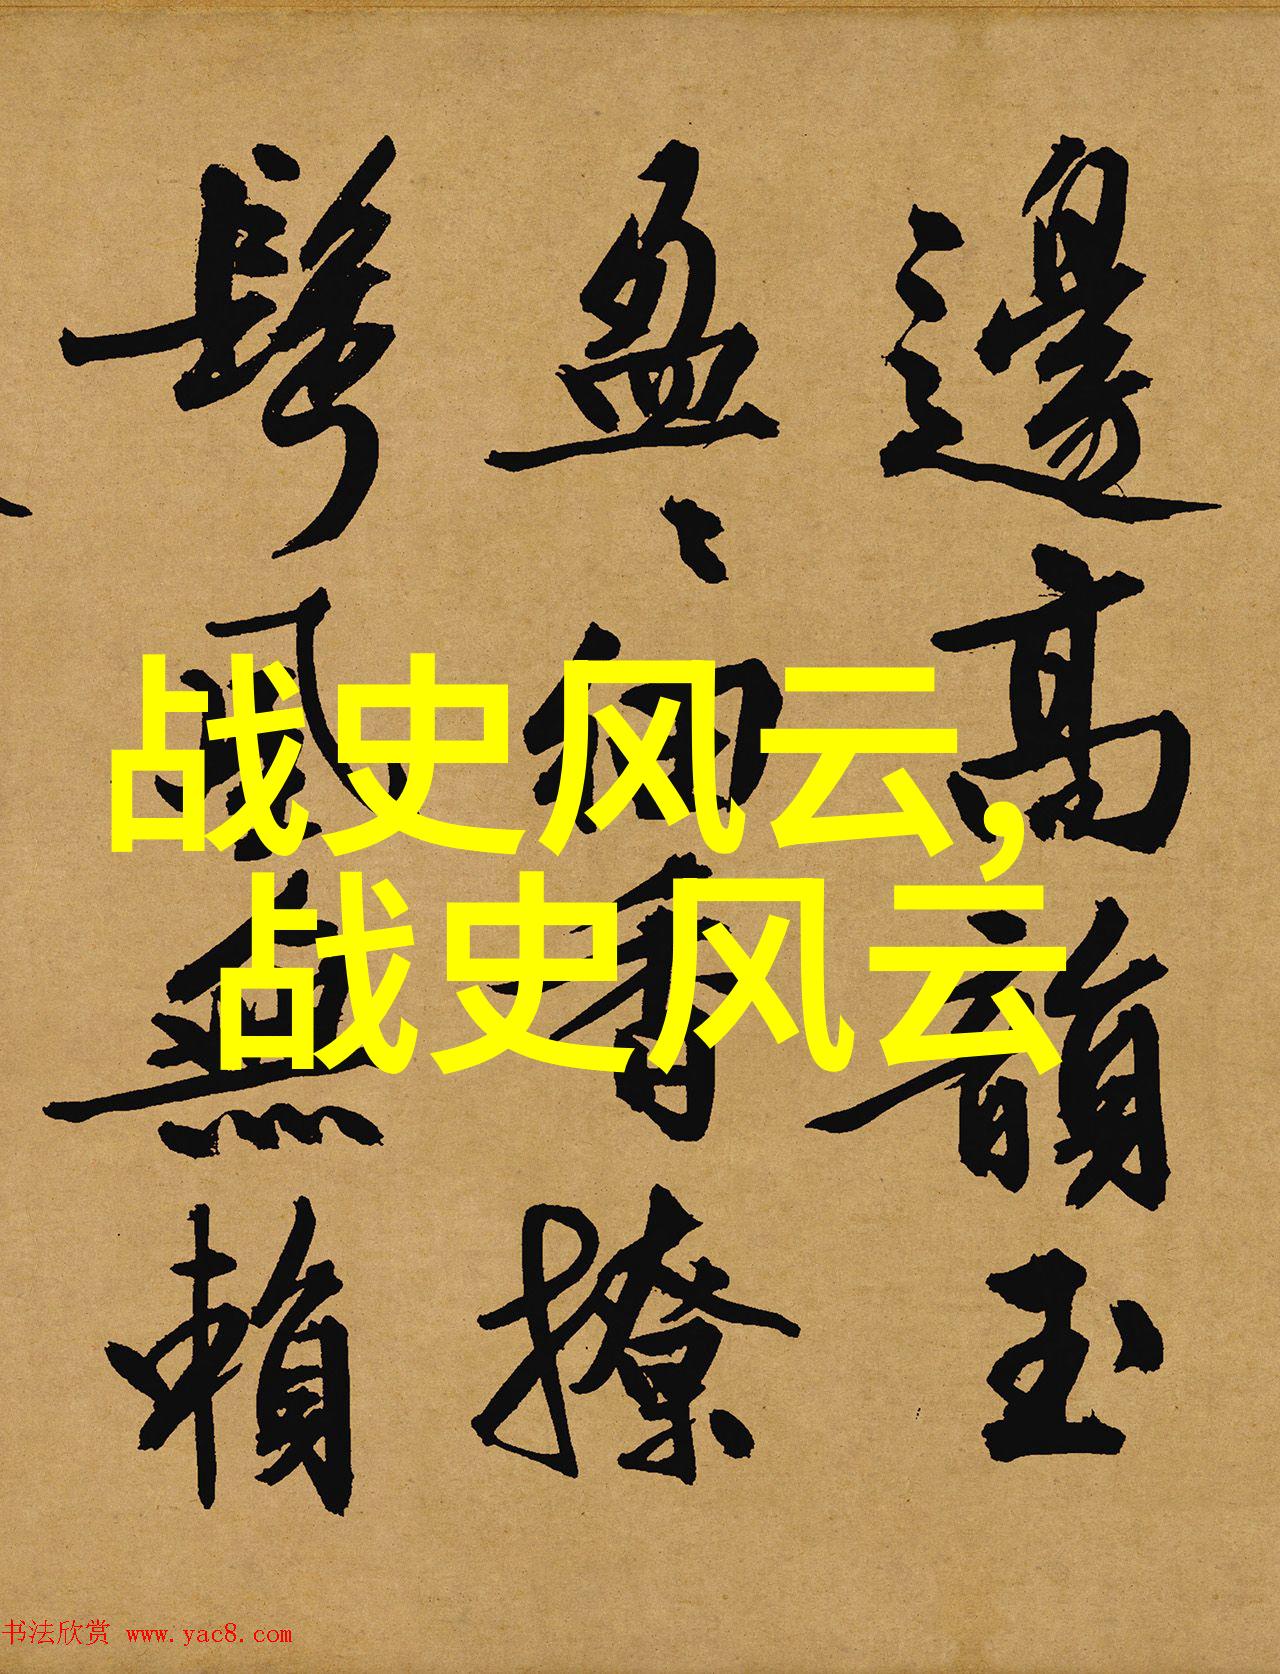 邊高韻玉
盈〻細香撩
鬢風無賴
战史风云,
战史风云
书法欣赏 www.yac8.com